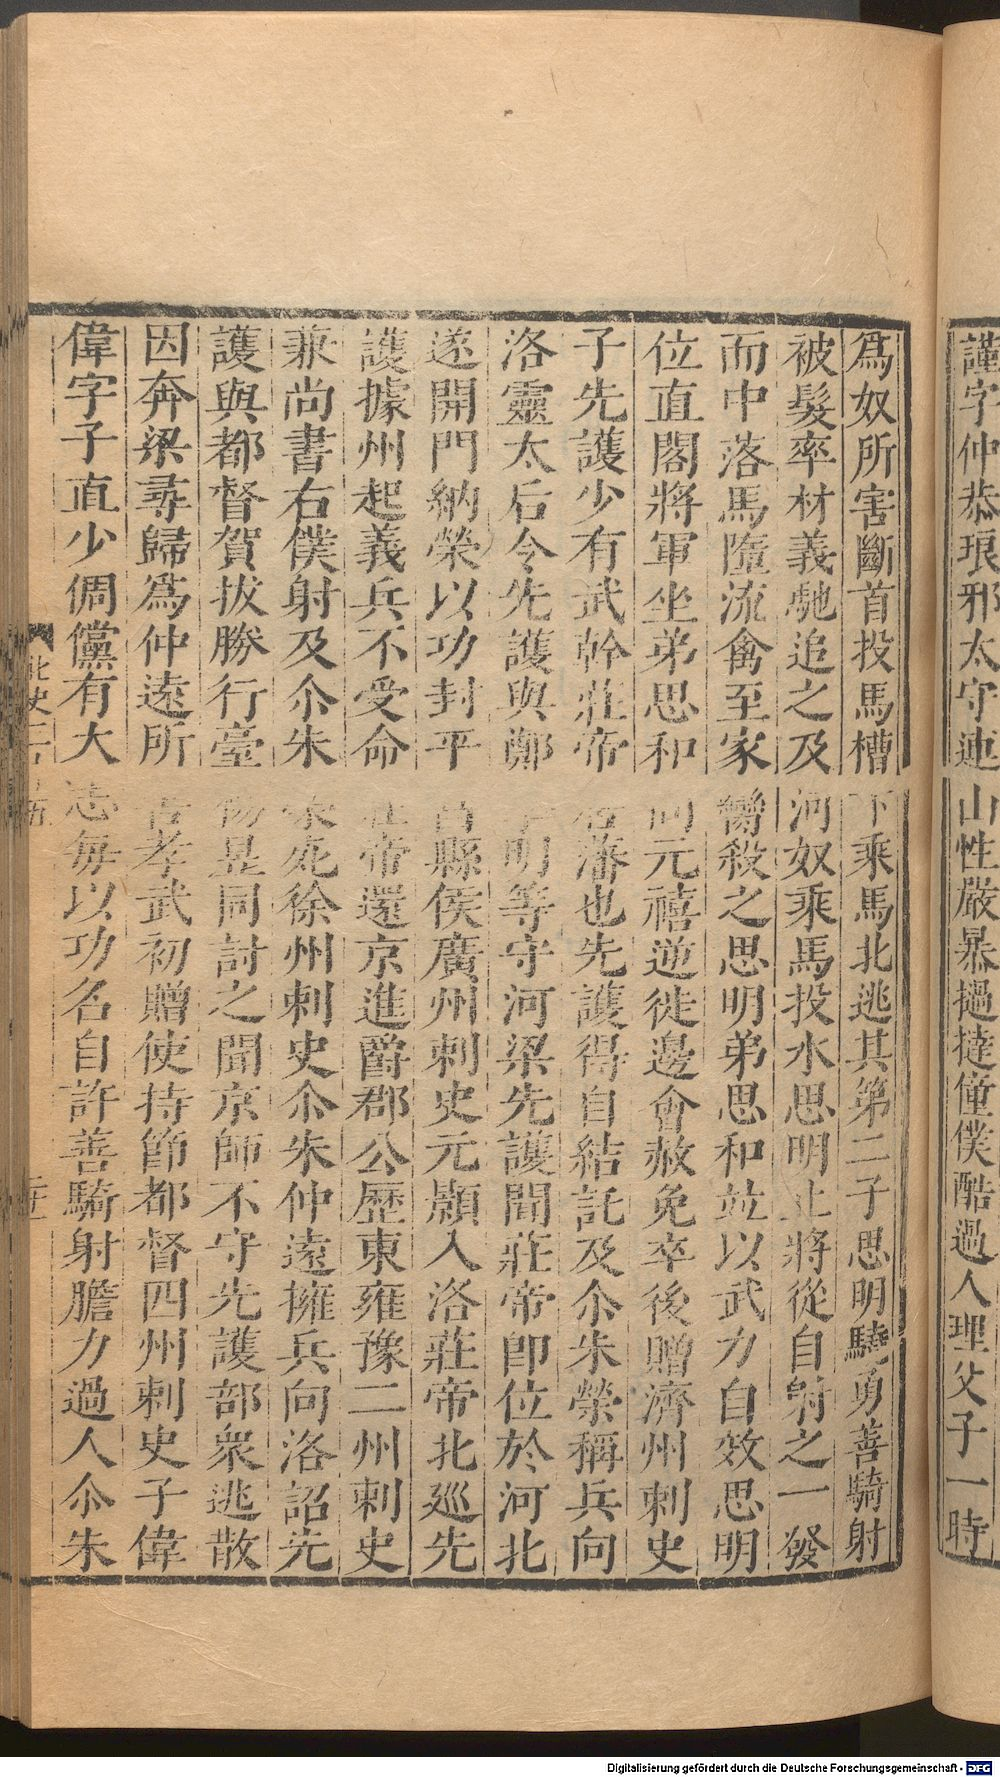 謹字仲恭琅邪太守連山性嚴暴撾撻僮僕酷過人理父子一時
爲奴所害斷首投馬槽下乘馬北逃其第二子思明驍勇善騎射
被髮率材義馳追之及河奴乘馬投水思明止將從自射之一發
而中落馬墮流禽至家臠殺之思明弟思和竝以武力自效思明
位直閣將軍坐弟思和同元禧逆徙邊會赦免卒後贈濟州刺史
子先護少有武幹莊帝居藩也先護得自結託及尒朱榮稱兵向
洛靈太后令先護與鄭季明等守河梁先護聞莊帝卽位於河北
遂開門納榮以功封平昌縣侯廣州刺史元顥入洛莊帝北巡先
護據州起義兵不受命莊帝還京進爵郡公歷東雍豫二州刺史
兼尚書右僕射及尒朱榮死徐州刺史尒朱仲遠擁兵向洛詔先
護與都督賀拔勝行臺楊昱同討之聞京師不守先護部衆逃散
因奔梁尋歸爲仲遠所害孝武初贈使持節都督四州刺史子偉
偉字子直少倜儻有大志每以功名自許善騎射膽力過人尒朱
北史
Digitalisierung gefördert durch die Deutsche Forschungsgemeinschaft - DFG